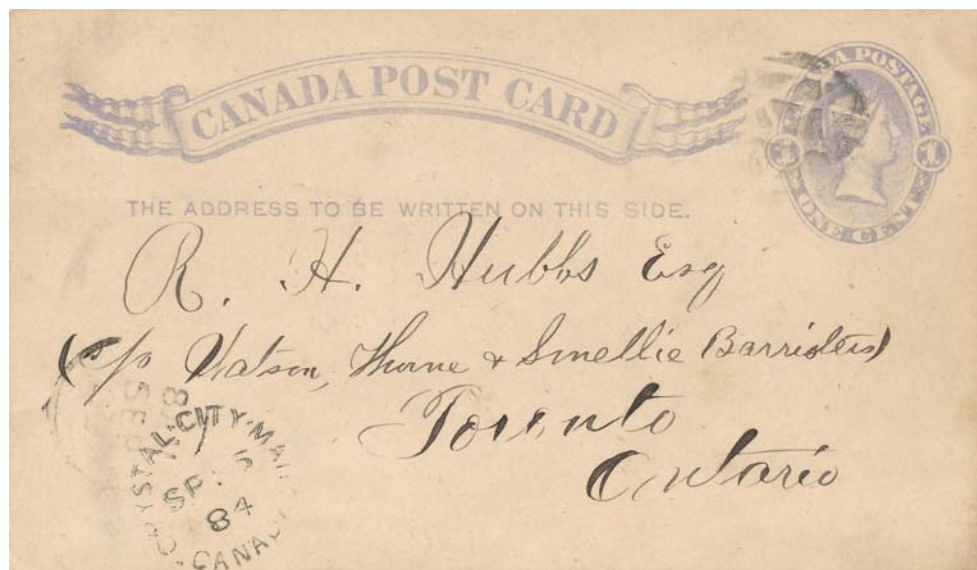 CANADA POST CARD
CANADA POSTAGE
1 1
ONE CENT
THE ADDRESS TO BE WRITTEN ON THIS SIDE.
R. H. Hubbs Esq
(c/o Watson, Thorne & Smellie Barristers)
Toronto
Ontario
SE
CRYSTAL·CITY·MAN
SP 5
84
CANADA